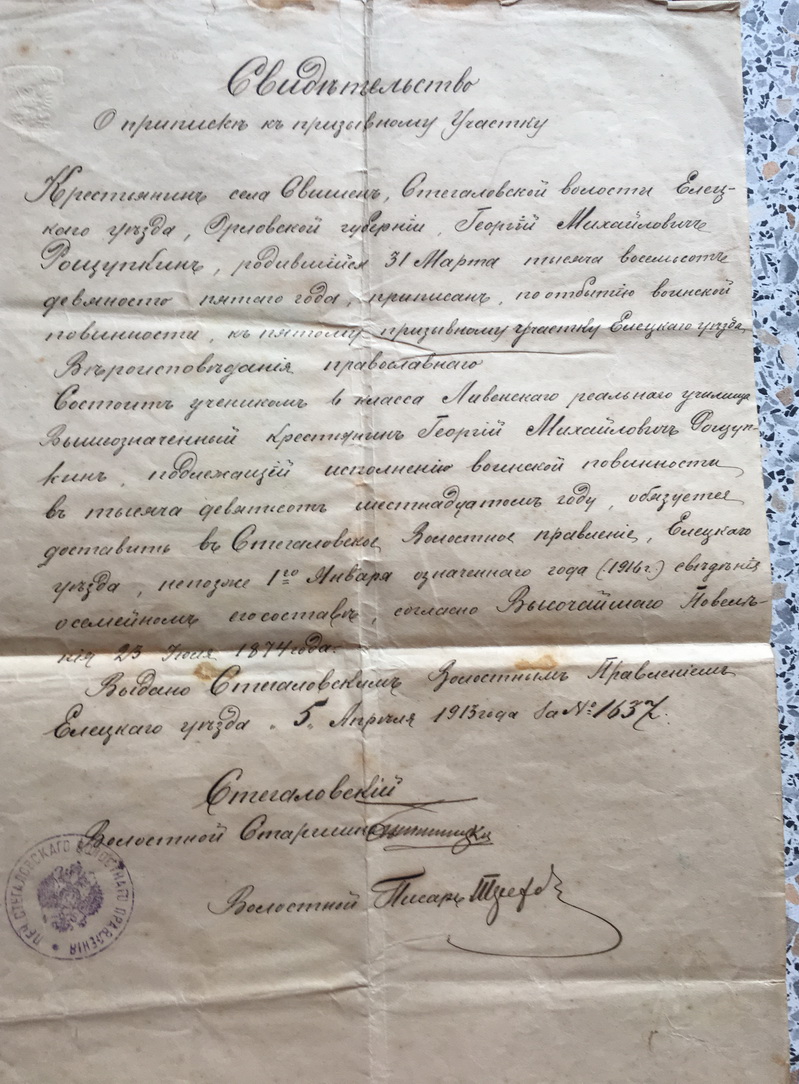 Свидѣтельство
О припискѣ къ призывному Участку
Крестьянинъ села Свишень, Стегаловской волости Елец-
каго уѣзда, Орловской губерніи, Георгій Михайловичъ
Рощупкинъ, родившійся 31 Марта тысяча восемьсотъ
девяносто пятаго года, приписанъ, по отбытію воинской
повинности, къ пятому призывному участку Елецкаго уѣзда,
Вѣроисповѣданія православнаго
Состоитъ ученикомъ 6 класса Ливенскаго реальнаго училища
Вышеозначенный крестьянинъ Георгій Михайловичъ Рощуп-
кинъ, подлежащій исполненію воинской повинности
въ тысяча девятисотъ шестнадцатомъ году, обязуется
доставить въ Стегаловское Волостное правленіе, Елецкаго
уѣзда, непозже 1го Января означеннаго года (1916 г.) свѣдѣнія
о семейномъ его составѣ, согласно Высочайшаго Повелѣ-
нія 23 Июля 1874 года.
Выдано Стегаловскимъ Волостнымъ Правленіемъ
Елецкаго уѣзда „5„ Апрѣля 1913 года За № 1637.
Стегаловскій
Волостной Старшина
Волостной Писарь
ПЕЧ. СТЕГАЛОВСКАГО ВОЛОСТНАГО ПРАВЛЕНІЯ